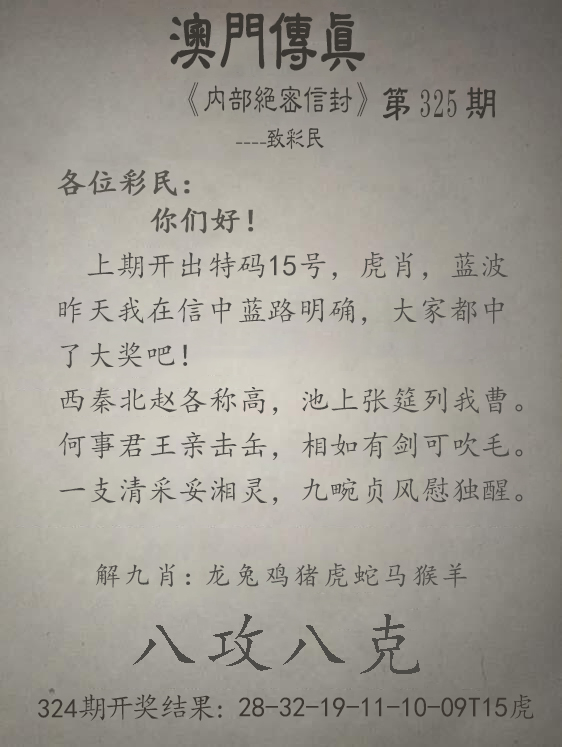 澳門傳眞
《内部絕密信封》第325期
----致彩民
各位彩民：
你们好！
上期开出特码15号，虎肖，蓝波
昨天我在信中蓝路明确，大家都中
了大奖吧！
西秦北赵各称高，池上张筵列我曹。
何事君王亲击缶，相如有剑可吹毛。
一支清采妥湘灵，九畹贞风慰独醒。
解九肖：龙兔鸡猪虎蛇马猴羊
八攻八克
324期开奖结果：28-32-19-11-10-09T15虎